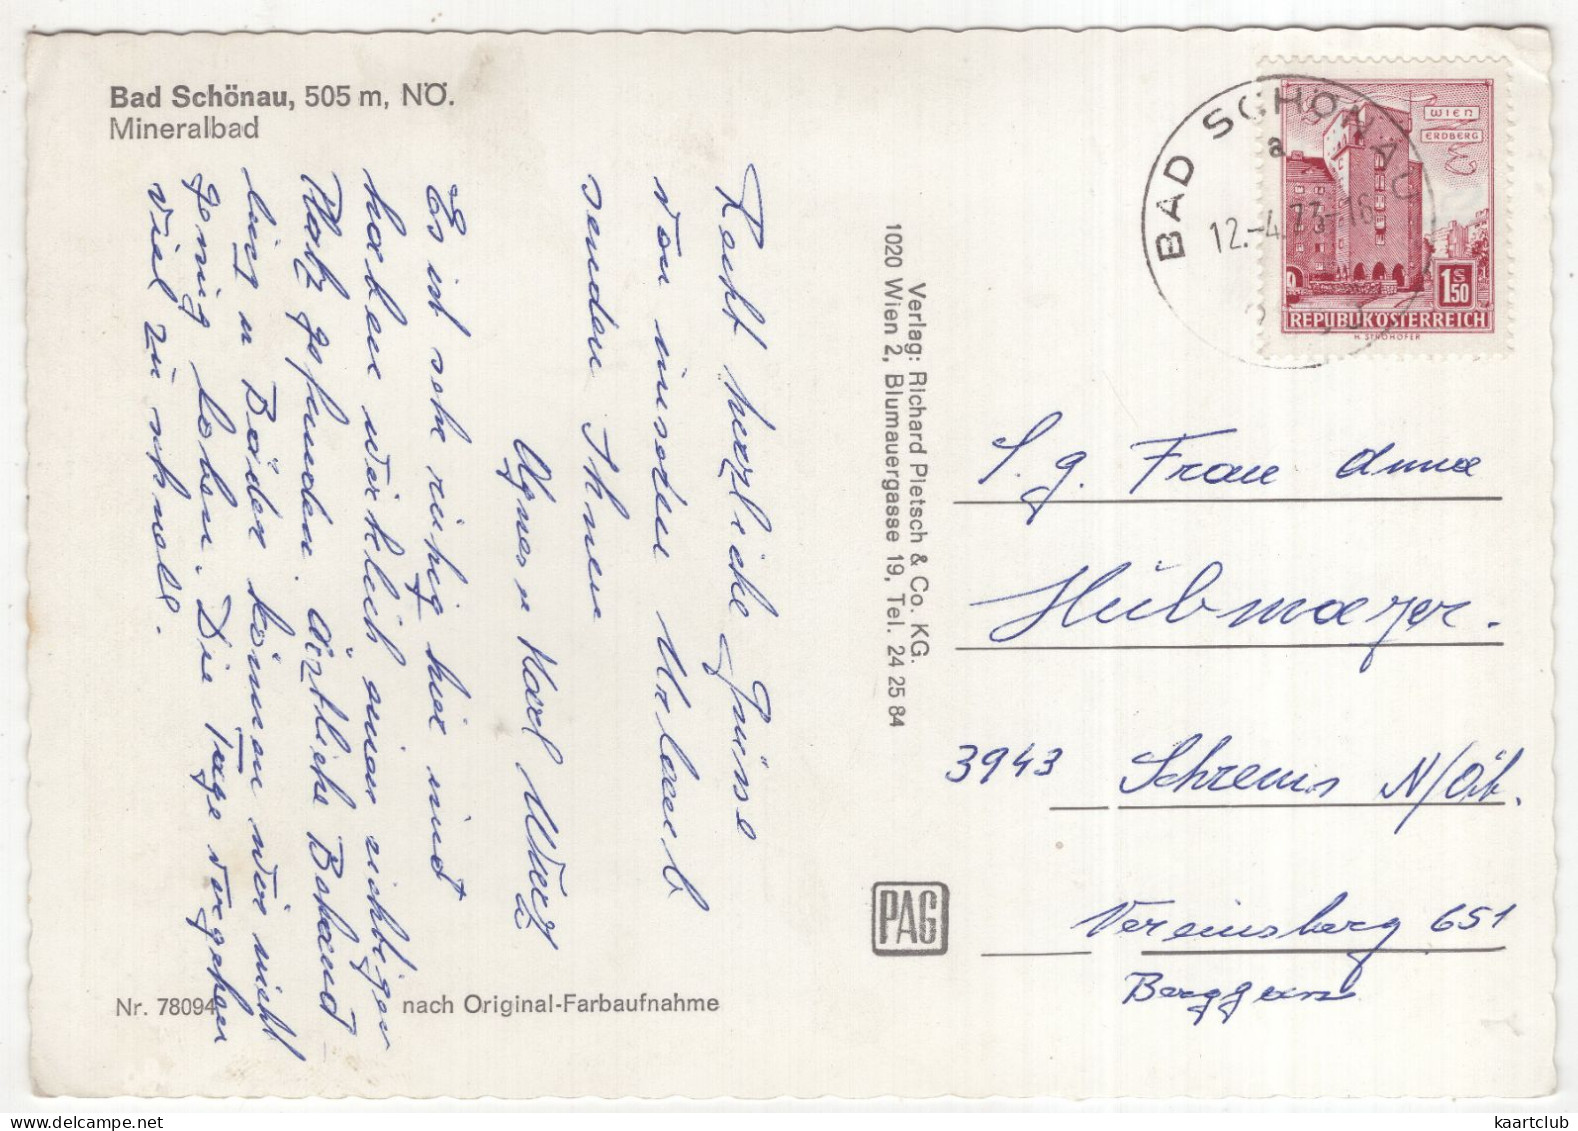 Bad Schönau, 505 m, NÖ.
Mineralbad
Recht herzliche Grüsse
von unseren Urlaub
senden Ihnen
Agnes u Karl
Es ist sehr ruhig hier und
haben wirklich einen richtigen
Platz gefunden. Ärztliche Behand
lung u Bäder können wir nicht
genug loben. Die Tage vergehen
viel zu schnell.
Nr. 78094
nach Original-Farbaufnahme
Verlag: Richard Pietsch & Co. KG.
1020 Wien 2, Blumauergasse 19, Tel. 24 25 84
PAG
BAD SCHÖNAU
a
12.-4.73-16
WIEN
ERDBERG
1S50
REPUBLIK ÖSTERREICH
H. STROHOFER
S. g. Frau Anna
Hübmayer.
3943 Schrems N/Öst.
Vereinsberg 651
kaartclub
delcampe.net